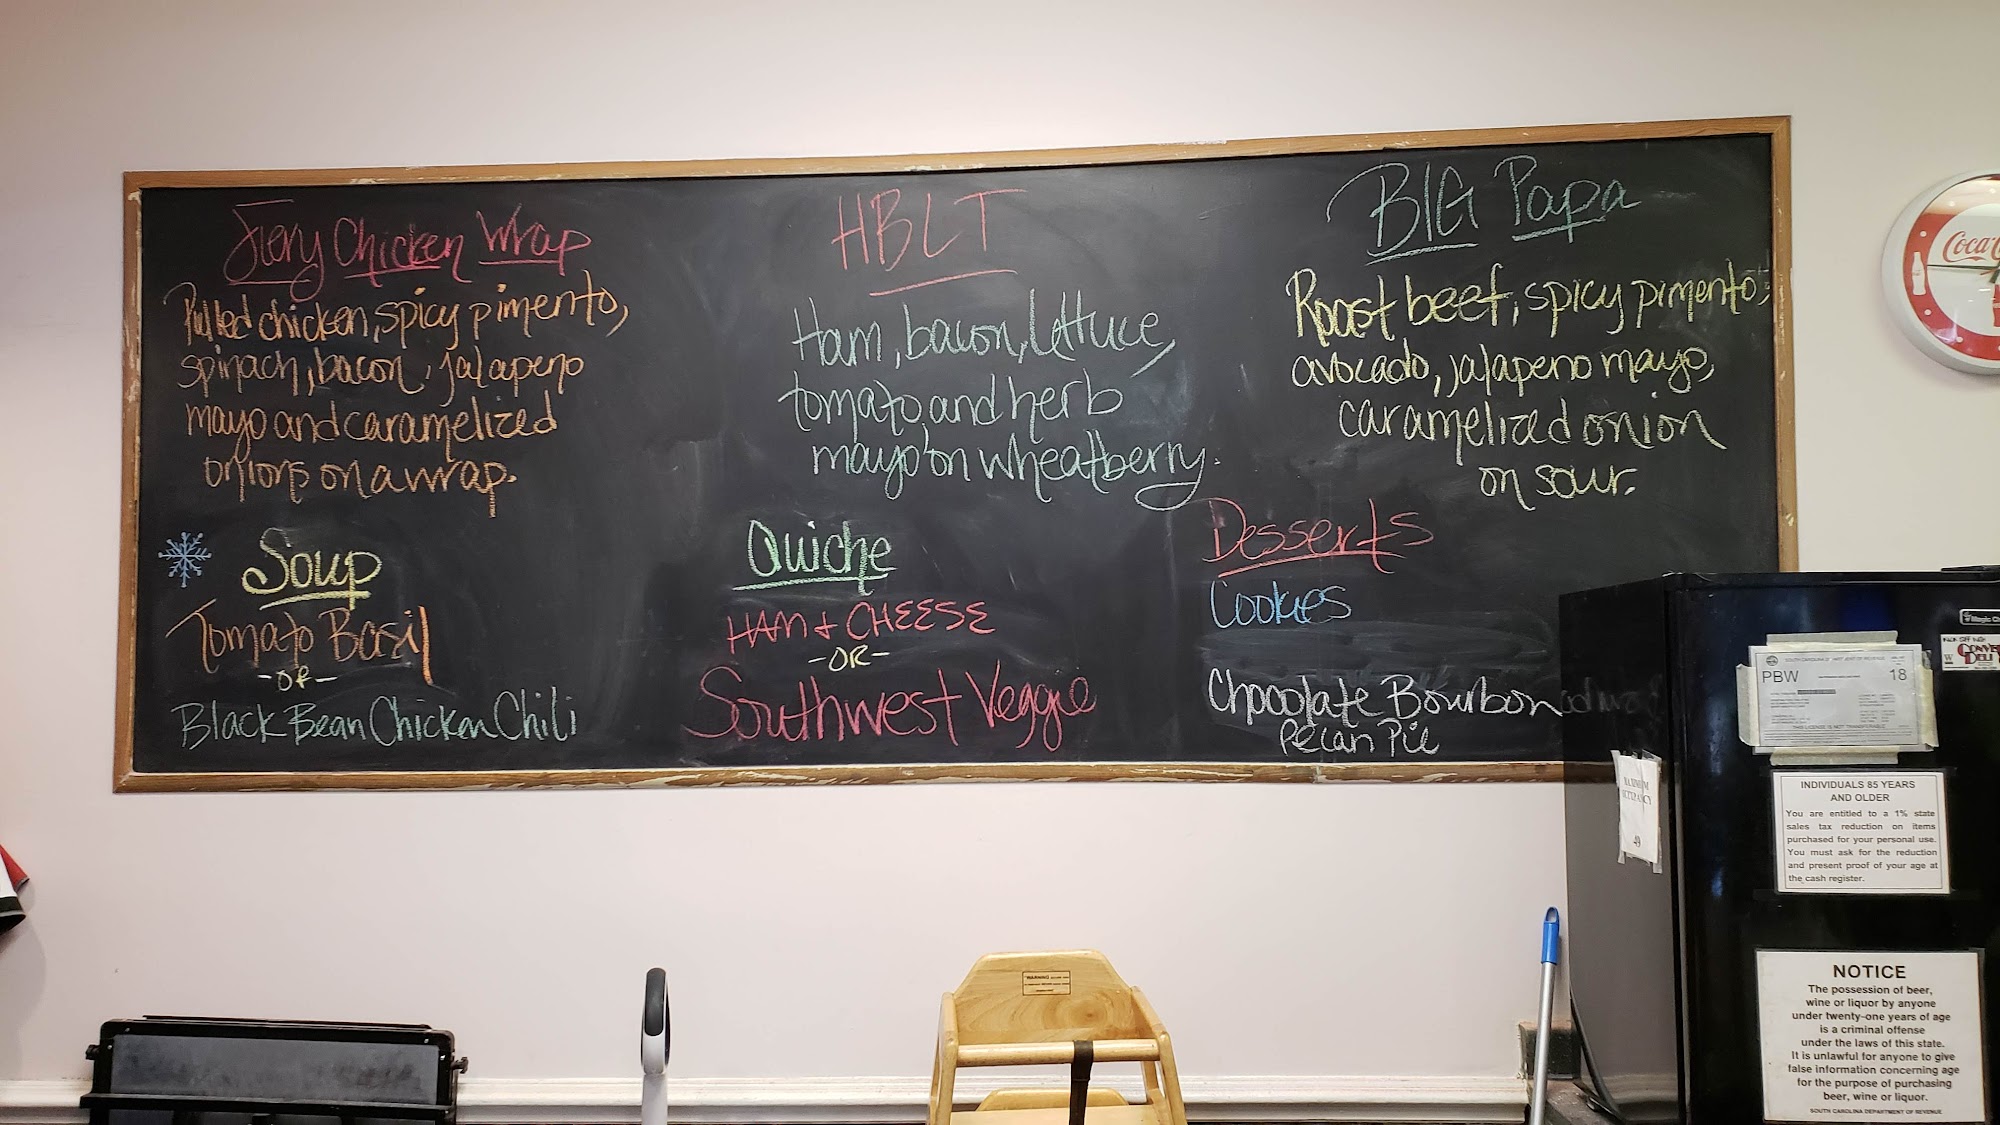 Fiery Chicken Wrap
Pulled chicken, spicy pimento,
spinach, bacon, jalapeno
mayo and caramelized
onions on a wrap.
HBLT
Ham, bacon, lettuce,
tomato, and herb
mayo on wheatberry.
BIG Papa
Roast beef, spicy pimento,
avocado, jalapeno mayo,
caramelized onion
on sour.
Soup
Tomato Basil
-OR-
Black Bean Chicken Chili
Quiche
HAM + CHEESE
-OR-
Southwest Veggie
Desserts
Cookies
Chocolate Bourbon
Pecan Pie
Coca
Magic Ch
DELI
PBW 18
THIS LICENSE IS NOT TRANSFERABLE
MAXIMUM
OCCUPANCY
49
INDIVIDUALS 85 YEARS
AND OLDER
You are entitled to a 1% state
sales tax reduction on items
purchased for your personal use.
You must ask for the reduction
and present proof of your age at
the cash register.
NOTICE
The possession of beer,
wine or liquor by anyone
under twenty-one years of age
is a criminal offense
under the laws of this state.
It is unlawful for anyone to give
false information concerning age
for the purpose of purchasing
beer, wine or liquor.
SOUTH CAROLINA DEPARTMENT OF REVENUE
WARNING